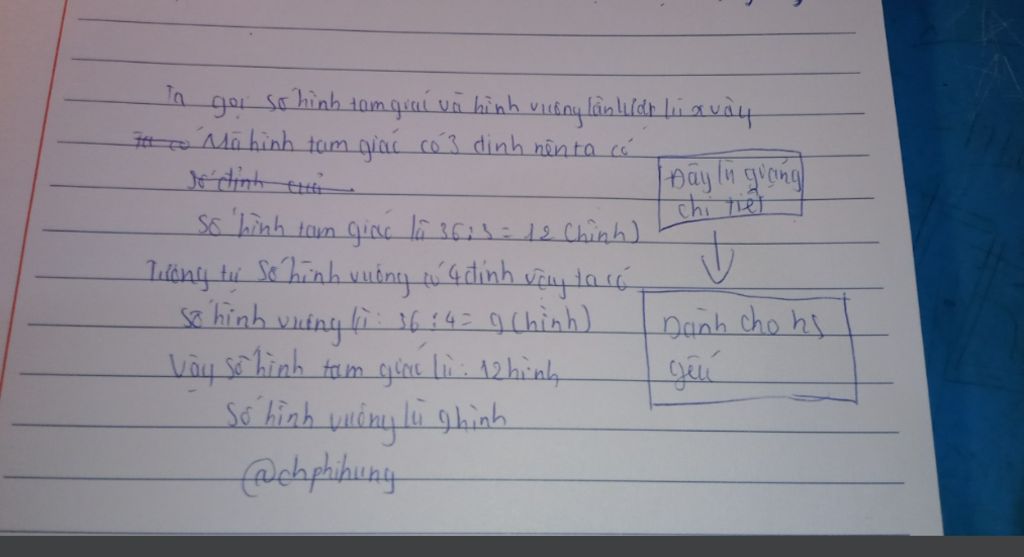 Ta gọi số hình tam giác và hình vuông lần lượt là x và y
Mà hình tam giác có 3 đỉnh nên ta có
Số đỉnh của
Số hình tam giác là 36 : 3 = 12 (hình)
Tương tự số hình vuông có 4 đỉnh vậy ta có
Số hình vuông là : 36 : 4 = 9 (hình)
Vậy số hình tam giác là : 12 hình
Số hình vuông là 9 hình
@chphihung
Đây là giảng
chi tiết
Dành cho hs
yếu